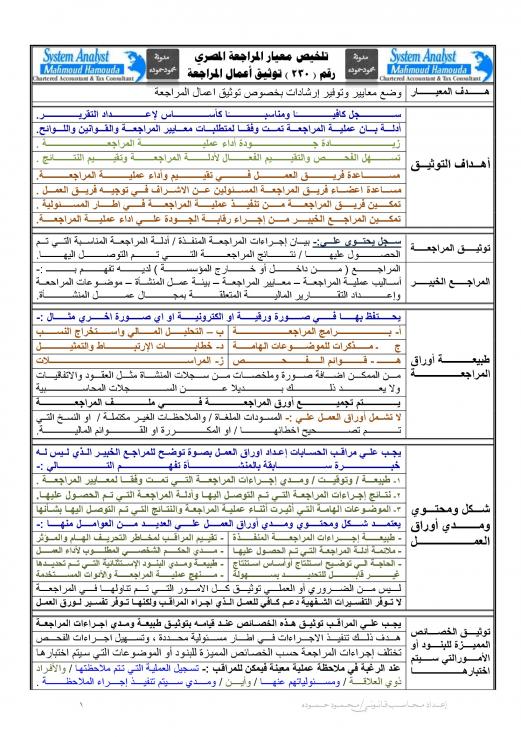 System Analyst
Mahmoud Hamouda
Chartered Accountant & Tax Consultant
مدونة
محمود حموده
تلخيص معيار المراجعة المصري
رقم (٢٣٠) توثيق أعمال المراجعة
مدونة
محمود حموده
System Analyst
Mahmoud Hamouda
Chartered Accountant & Tax Consultant
هدف المعيار
وضع معايير وتوفير إرشادات بخصوص توثيق اعمال المراجعة
أهداف التوثيق
سجل كافيا ومناسبا كأساس لإعداد التقرير.
أدلة بان عملية المراجعة تمت وفقا لمتطلبات معايير المراجعة والقوانين واللوائح.
زيادة جودة أداء عملية المراجعة.
تسهل الفحص والتقييم الفعال لأدلة المراجعة وتقييم النتائج.
مساعدة فريق العمل في تقييم وأداء عملية المراجعة.
مساعدة اعضاء فريق المراجعة المسئولين عن الاشراف في توجيه فريق العمل.
تمكين فريق المراجعة من تنفيذ عملية المراجعة في اطار المسئولية.
تمكين المراجع الخبير من إجراء رقابة الجودة علي اداء عملية المراجعة.
توثيق المراجعة
سجل يحتوي علي:- بيان إجراءات المراجعة المنفذة / أدلة المراجعة المناسبة التي تم
الحصول عليها / نتائج المراجعة التي تم التوصل اليها.
المراجع الخبير
المراجع (من داخل أو خارج المؤسسة) لديه تفهم بـ :-
أساليب عملية المراجعة – معايير المراجعة – بيئة عمل المنشأة – موضوعات المراجعة
وإعداد التقارير المالية المتعلقة بمجال عمل المنشأة.
طبيعة أوراق المراجعة
يحتفظ بها في صورة ورقية او الكترونية او اي صورة اخري مثال :-
أ- برامج المراجعة
ب – التحليل المالي واستخراج النسب
ج . مذكرات للموضوعات الهامة
د- خطابات الإرتباط والتمثيل
هـ - قوائم الفحص
ز- المراسلات
من الممكن اضافة صورة وملخصات من سجلات المنشاة مثل العقود والاتفاقيات
ولا يعد ذلك بديلا عن السجلات المحاسبية
يتم تجميع أورق المراجعة في ملف المراجعة
لا تشمل أوراق العمل علي :- المسودات الملغاة / والملاحظات الغير مكتملة / او النسخ التي
تم تصحيح اخطائها / او المكررة او القوائم المالية.
شكل ومحتوي ومدي أوراق العمل
يجب علي مراقب الحسابات إعداد اوراق العمل بصوة توضح للمراجع الخبير الذي ليس له
خبرة سابقة بالمنشأة تفهم التالي :-
١- طبيعة / وتوقيت / ومدي إجراءات المراجعة التي تمت وفقا لمعايير المراجعة.
٢- نتائج إجراءات المراجعة التي تم التوصل اليها وأدلة المراجعة التي تم الحصول عليها.
٣- الموضوعات الهامة التي أثيرت أثناء عملية المراجعة والنتائج التي تم التوصل اليها بشأنها
يعتمد شكل ومحتوي ومدي أوراق العمل علي العديد من العوامل منها :-
- طبيعة إجراءات المراجعة المنفذة
- تقييم المراقب لمخاطر التحريف الهام والمؤثر
- ملائمة أدلة المراجعة التي تم الحصول عليها
- مدي الحكم الشخصي المطلوب لأداء العمل
- الحاجة الي توضيح استنتاج أواساس استنتاج
غير قابل للتحديد بسهولة
- طبيعة ومدي البنود الإستثنائية التي تم تحديدها
- منهج عملية المراجعة والأدوات المستخدمة
ليس من الضروري أو العملي توثيق كل الامور التي تم تناولها في المراجعة
لا توفر التفسيرات الشفهية دعم كافي للعمل الذي اجراه المراقب ولكنها توفر تفسير لورق العمل
توثيق الخصائص المميزة للبنود أو الأمور التي سيتم اختبارها
يجب علي المراقب توثيق هذه الخصائص عند قيامه بتوثيق طبيعة ومدي اجراءات المراجعة
هدف ذلك تنفيذ الاجراءات في اطار مسئولية محددة ، وتسهيل اجراءات الفحص
تختلف إجراءات المراجعة حسب الخصائص المميزة للبنود أو الموضوعات التي سيتم اختبارها
عند الرغبة في ملاحظة عملية معينة فيمكن للمراقب :- تسجيل العملية التي تتم ملاحظتها / والأفراد
ذوي العلاقة / ومسئولياتهم عنها / وأين / ومدي سيتم تنفيذ إجراء الملاحظة.
إعداد محاسب قانوني/ محمود حموده
١